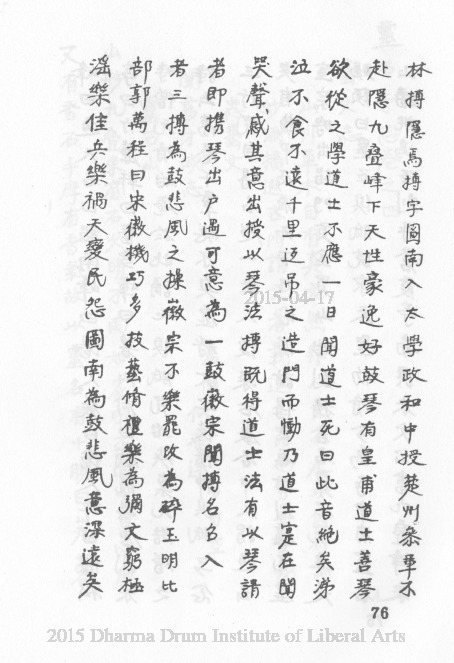 林摶隱焉摶字圖南入太學政和中授楚州参軍不
赴隱九疊峰下天性豪逸好鼓琴有皇甫道士善琴
欲從之學道士不應一日聞道士死曰此音絶矣涕
泣不食不遠千里逕吊之造門而慟乃道士寔在聞
哭聲感其意出授以琴法摶既得道士法有以琴請
者即携琴出户遇可意為一鼓徽宗聞摶名召入
者三摶為鼓悲風之操徽宗不樂罷改為碎玉明比
部郭萬程曰宋徽機巧多技藝脩禮樂為彌文窮極
滛樂佳兵樂禍天變民怨圖南為鼓悲風意深遠矣
76
2015-04-17
2015 Dharma Drum Institute of Liberal Arts